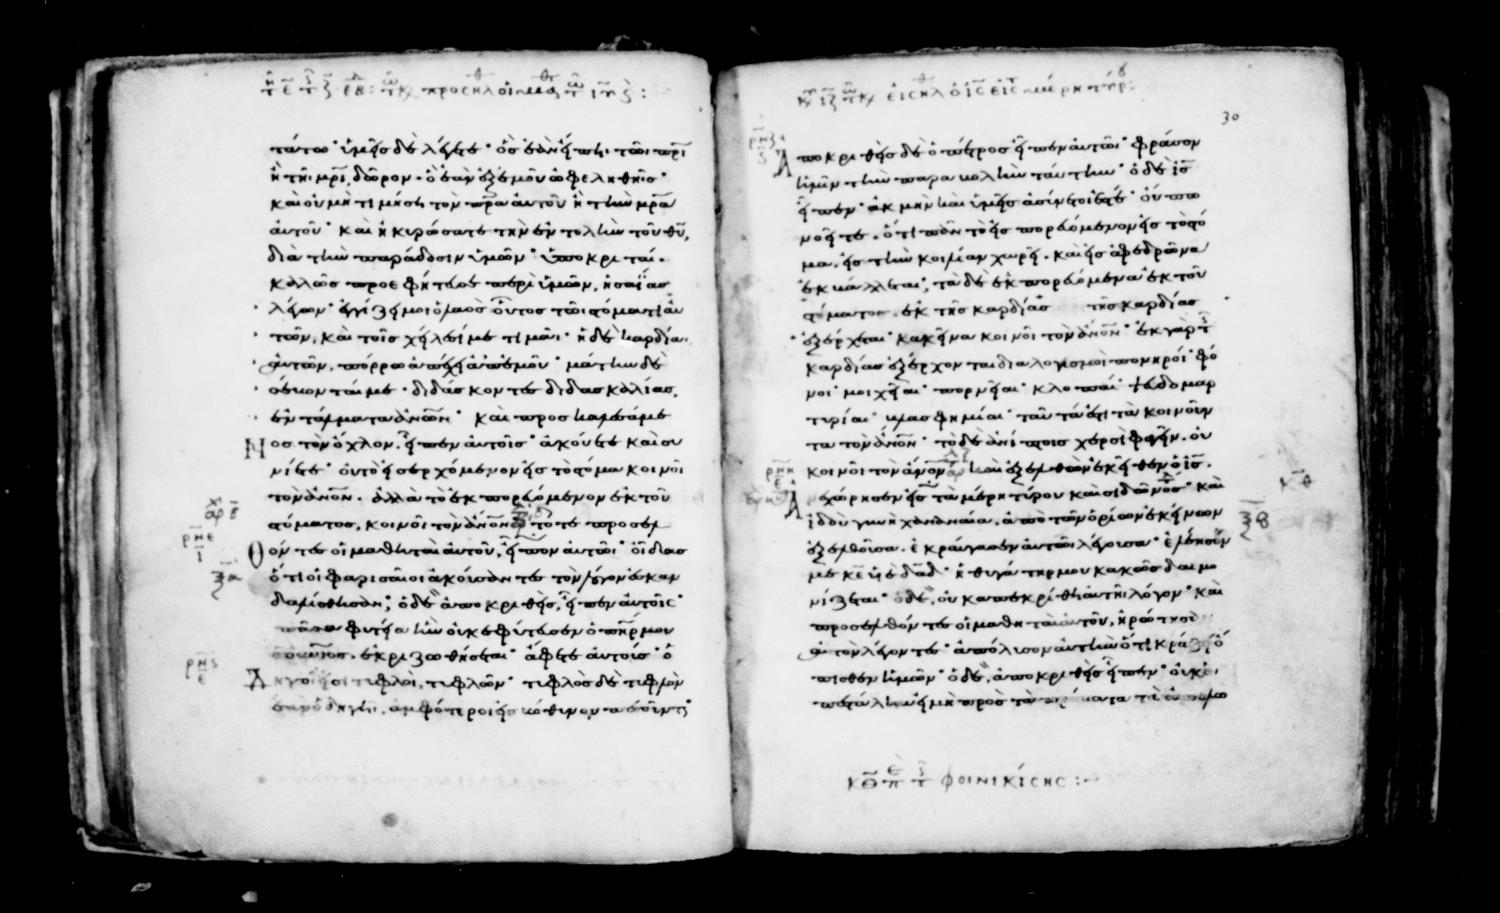 τάτω· ὑμεῖς δὲ λέγετε· ὃς ἐὰν εἴπηι τῶι πρι
ἢ τῆι μρι, δῶρον· ὃ ἐὰν ἐξ ἐμοῦ ὠφεληθῆις·
καὶ οὐ μὴ τιμήσηι τὸν πρα αὐτοῦ ἢ τὴν μρα
αὐτοῦ· καὶ ἠκιρώσατε τὴν ἐντολὴν τοῦ θυ,
διὰ τὴν παράδοσιν ὑμῶν· ὑποκριταί.
καλῶς προεφήτευσε περὶ ὑμῶν, ἡσαΐας
λέγων· ἐγγίζει μοι ὁ λαὸς οὗτος τῶι στόματι αὐ
τῶν, καὶ τοῖς χείλεσί με τιμᾶι· ἡ δὲ καρδία
αὐτῶν, πόρρω ἀπέχει ἀπ' ἐμοῦ· μάτην δὲ
σέβονταί με· διδάσκοντες διδασκαλίας,
ἐντάλματα ἀνων· καὶ προσκαλεσάμε
νος τὸν ὄχλον, εἶπεν αὐτοῖς· ἀκούετε καὶ συ
νίετε· οὐ τὸ εἰσερχόμενον εἰς τὸ στόμα κοινοῖ
τὸν ἀνον· ἀλλὰ τὸ ἐκπορευόμενον ἐκ τοῦ
στόματος, κοινοῖ τὸν ἀνον τότε προσελ
θόντες οἱ μαθηταὶ αὐτοῦ, εἶπον αὐτῶι· οἶδας
ὅτι οἱ φαρισαῖοι ἀκούσαντες τὸν λόγον ἐσκαν
δαλίσθησαν; ὁ δὲ ἀποκριθεὶς, εἶπεν αὐτοῖς·
πᾶσα φυτεία ἣν οὐκ ἐφύτευσεν ὁ πηρ μου
ὁ ουνιος· ἐκριζωθήσεται· ἄφετε αὐτούς· ὁ
δηγοί εἰσι τυφλοὶ, τυφλῶν· τυφλὸς δὲ τυφλὸν
ἐὰν ὁδηγῆι, ἀμφότεροι εἰς βόθυνον πεσοῦντ
30
Αποκριθεὶς δὲ ὁ πέτρος εἶπεν αὐτῶι· φράσον
ἡμῖν τὴν παραβολὴν ταύτην· ὁ δὲ ις
εἶπεν· ἀκμὴν καὶ ὑμεῖς ἀσύνετοί ἐστέ· οὔπω
νοεῖτε· ὅτι πᾶν τὸ εἰσπορευόμενον εἰς τὸ στό
μα, εἰς τὴν κοιλίαν χωρεῖ· καὶ εἰς ἀφεδρῶνα
ἐκβάλλεται; τὰ δὲ ἐκπορευόμενα ἐκ τοῦ
στόματος, ἐκ τῆς καρδίας τῆς καρδίας
ἐξέρχεται· κακεῖνα κοινοῖ τὸν ἀνον· ἐκ γὰρ τ
καρδίας ἐξέρχονται διαλογισμοὶ πονηροί· φό
νοι· μοιχεῖαι· πορνεῖαι· κλοπαί· ψευδομαρ
τυρίαι· βλασφημίαι· ταῦτά ἐστι τὰ κοινοῦν
τα τὸν ἀνον· τὸ δὲ ἀνίπτοις χερσὶ φαγεῖν· οὐ
κοινοῖ τὸν ἀνον καὶ ἐξελθὼν ἐκεῖθεν ὁ ις·
Ανεχώρησεν εἰς τὰ μέρη τύρου καὶ σιδῶνος· καὶ
ἰδοὺ γυνὴ χαναναία, ἀπὸ τῶν ὁρίων ἐκείνων
ἐξελθοῦσα· ἐκραύγασεν αὐτῶι λέγουσα· ἐλέησόν
με κε υε δαδ· ἡ θυγάτηρ μου κακῶς δαιμο
νίζεται· ὁ δὲ, οὐκ ἀπεκρίθη αὐτῆι λόγον· καὶ
προσελθόντες οἱ μαθηταὶ αὐτοῦ, ἠρώτησ
αὐτὸν λέγοντες· ἀπόλυσον αὐτὴν ὅτι κράζει ὄ
πισθεν ἡμῶν· ὁ δὲ, ἀποκριθεὶς εἶπεν· οὐκ
ἀπεστάλην εἰ μὴ πρὸς τὰ
φοινικίσης